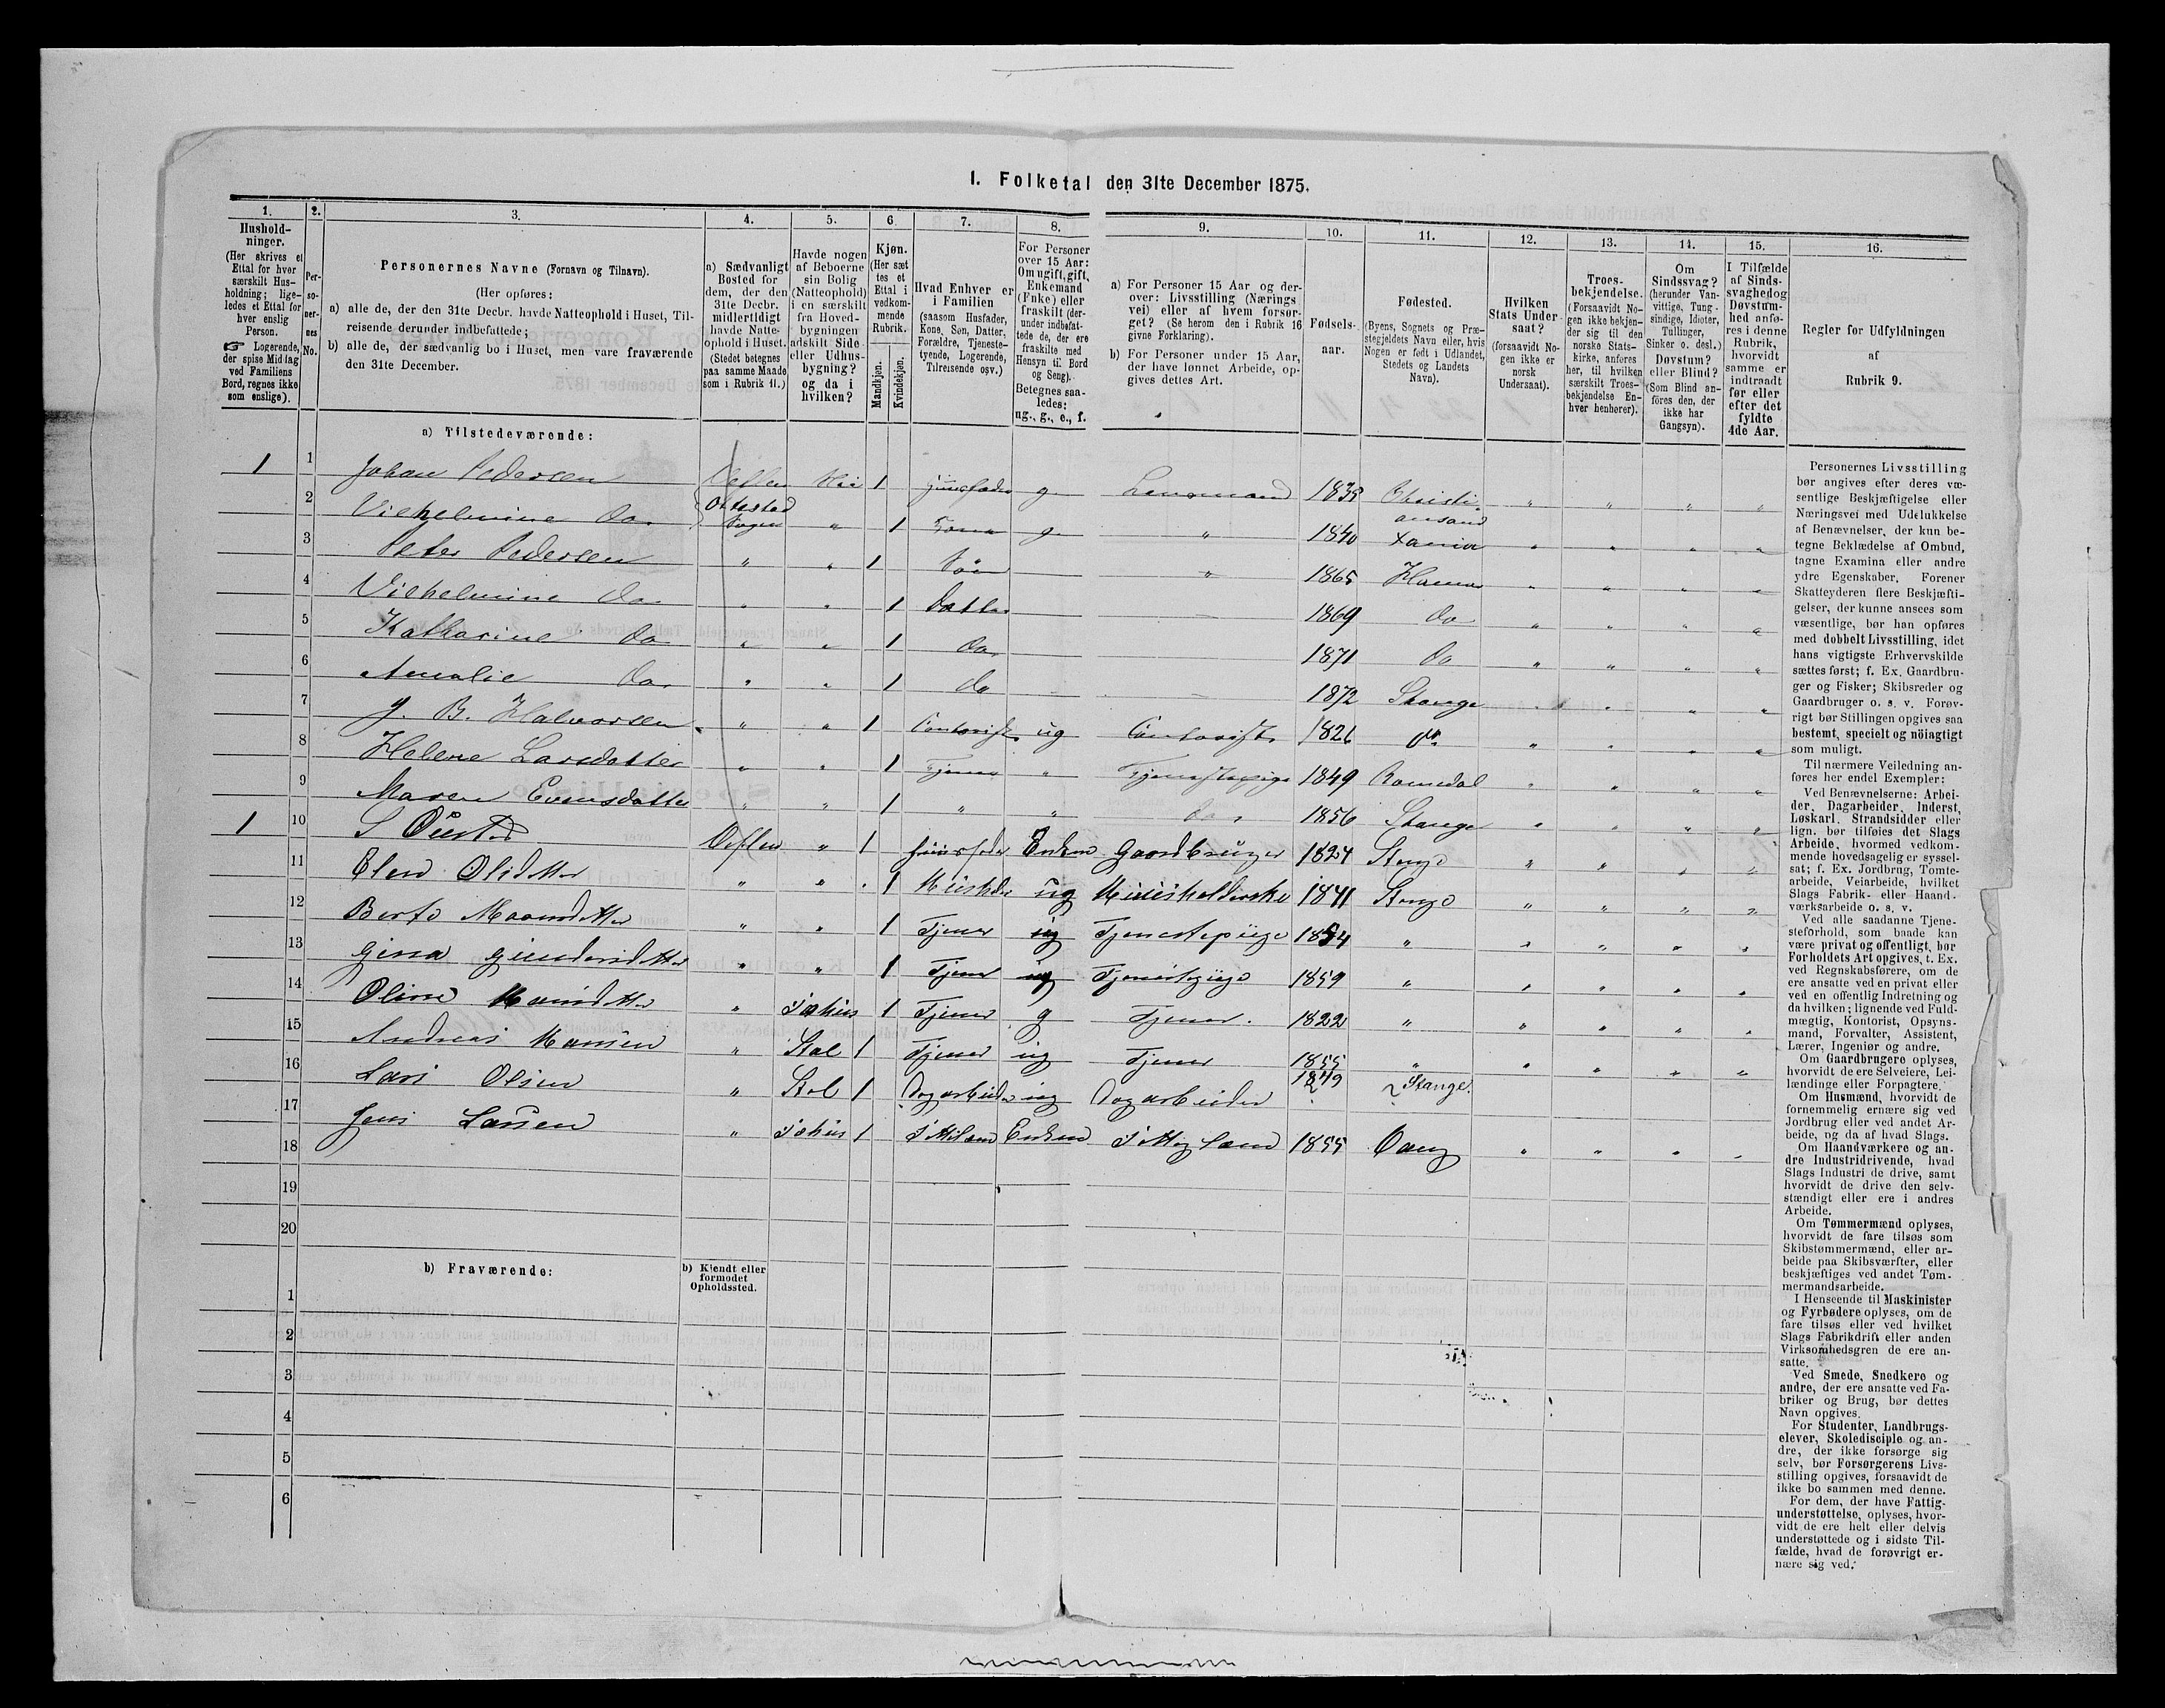 1. Folketal den 31te December 1875.
1. 2. 3. 4. 5. 6. 7. 8. 9. 10. 11. 12. 13. 14. 15. 16.
Husholdninger.
(Her skrives et Ettal for hver særskilt Husholdning; ligeledes et Ettal for hver enslig Person.
☞ Logerende, der spise Middag ved Familiens Bord, regnes ikke som enslige).
Personernes No.
Personernes Navne (Fornavn og Tilnavn).
(Her opføres:
a) alle de, der den 31te Decbr. havde Natteophold i Huset, Tilreisende derunder indbefattede;
b) alle de, der sædvanlig bo i Huset, men vare fraværende den 31te December.
a) Sædvanligt Bosted for dem, der den 31te Decbr. midlertidigt havde Natteophold i Huset.
(Stedet betegnes paa samme Maade som i Rubrik 11.)
Havde nogen af Beboerne sin Bolig (Natteophold) i en særskilt fra Hovedbygningen adskilt Side eller Udhusbygning? og da i hvilken?
Kjøn.
(Her sættes et Ettal i vedkommende Rubrik.
Mandkjøn.
Kvindekjøn.
Hvad Enhver er i Familien
(saasom Husfader, Kone, Søn, Datter, Forældre, Tjenestetyende, Logerende, Tilreisende osv.)
For Personer over 15 Aar: Om ugift, gift, Enkemand (Enke) eller fraskilt (derunder indbefattede de, der ere fraskilte med Hensyn til Bord og Seng).
Betegnes saaledes: ug., g., e., f.
a) For Personer 15 Aar og derover: Livsstilling (Næringsvei) eller af hvem forsørget? (Se herom den i Rubrik 16 givne Forklaring).
b) For Personer under 15 Aar, der have lønnet Arbeide, opgives dettes Art.
Fødselsaar.
Fødested.
(Byens, Sognets og Præstegjeldets Navn eller, hvis Nogen er født i Udlandet, Stedets og Landets Navn).
Hvilken Stats Undersaat?
(forsaavidt Nogen ikke er norsk Undersaat).
Troesbekjendelse.
(Forsaavidt Nogen ikke bekjender sig til den norske Statskirke, anføres her, til hvilken særskilt Troesbekjendelse Enhver henhører).
Om Sindssvag?
(herunder Vanvittige, Tungsindige, Idioter, Tullinger, Sinker o. desl.)
Døvstum? eller Blind?
(Som Blind anføres den, der ikke har Gangsyn).
I Tilfælde af Sindssvaghed og Døvstumhed anføres i denne Rubrik, hvorvidt samme er indtraadt før eller efter det fyldte 4de Aar.
Regler for Udfyldningen af Rubrik 9.
a) Tilstedeværende:
1 1 Johan Pedersen 1 Husfader g Lensmand 1835 Christiansand
2 Vilhelmine do. Ottestad Sogn " 1 Kone g " 1840 Xania
3 Peter Pedersen " " 1 Søn " 1865 Hamar
4 Vilhelmine do " " 1 Datter 1869 do
5 Katharine do " " 1 do. 1871 do
6 Amalie do. " " 1 do 1872 Stange
7 J. B. Halvorsen " " 1 Contorist ug Contorist 1826
8 Helene Larsdatter " " 1 Tjener " Tjenestepige 1849 Romedal
9 Maren Evensdatter " " 1 " " do. 1856 Stange
1 10 " 1 Husfader Enkem Gaardbruger 1824 Stange
11 " " 1 ug Huusholderske 1841 Stange
12 " " 1 Tjener ug Tjenestepige 1854 "
13 " " 1 Tjener ug Tjenestepige 1859 "
14 " 1 Tjener g Tjener. 1822 "
15 Andreas Hansen " Stal 1 Tjener ug Tjener 1855 "
16 Lars Olsen " Stal 1 Dagarbeider ug Dagarbeider 1849 Stange
17 Jens " 1 Enkem 1855 Vang
18
19
20
b) Fraværende:
b) Kjendt eller formodet Opholdssted.
1
2
3
4
5
6
Personernes Livsstilling bør angives efter deres væsentlige Beskjæftigelse eller Næringsvei med Udelukkelse af Benævnelser, der kun betegne Beklædelse af Ombud, tagne Examina eller andre ydre Egenskaber. Forener Skatteyderen flere Beskjæftigelser, der kunne ansees som væsentlige, bør han opføres med dobbelt Livsstilling, idet hans vigtigste Erhvervskilde sættes først; f. Ex. Gaardbruger og Fisker; Skibsreder og Gaardbruger o. s. v. Forøvrigt bør Stillingen opgives saa bestemt, specielt og nöiagtigt som muligt.
Til nærmere Veiledning anføres her endel Exempler:
Ved Benævnelserne: Arbeider, Dagarbeider, Inderst, Løskarl, Strandsidder eller lign. bør tilføies det Slags Arbeide, hvormed vedkommende hovedsagelig er sysselsat; f. Ex. Jordbrug, Tomtearbeide, Veiarbeide, hvilket Slags Fabrik- eller Haandværksarbeide o. s. v.
Ved alle saadanne Tjenesteforhold, som baade kan være privat og offentligt, bør Forholdets Art opgives, t. Ex. ved Regnskabsførere, om de ere ansatte ved en privat eller ved en offentlig Indretning og da hvilken; lignende ved Fuldmægtig, Kontorist, Opsynsmand, Forvalter, Assistent, Lærer, Ingeniør og andre.
Om Gaardbrugere oplyses, hvorvidt de ere Selveiere, Leilændinge eller Forpagtere.
Om Husmænd, hvorvidt de fornemmelig ernære sig ved Jordbrug eller ved andet Arbeide, og da af hvad Slags.
Om Haandværkere og andre Industridrivende, hvad Slags Industri de drive, samt hvorvidt de drive den selvstændigt eller ere i andres Arbeide.
Om Tømmermænd oplyses, hvorvidt de fare tilsøs som Skibstømmermænd, eller arbeide paa Skibsværfter, eller beskjæftiges ved andet Tømmermandsarbeide.
I Henseende til Maskinister og Fyrbødere oplyses, om de fare tilsøs eller ved hvilket Slags Fabrikdrift eller anden Virksomhedsgren de ere ansatte.
Ved Smede, Snedkere og andre, der ere ansatte ved Fabriker og Brug, bør dettes Navn opgives.
For Studenter, Landbrugselever, Skoledisciple og andre, der ikke forsørge sig selv, bør Forsørgerens Livsstilling opgives, forsaavidt de ikke bo sammen med denne.
For dem, der have Fattigunderstøttelse, oplyses, hvorvidt de ere helt eller delvis understøttede og i sidste Tilfælde, hvad de forøvrigt ernære sig ved.